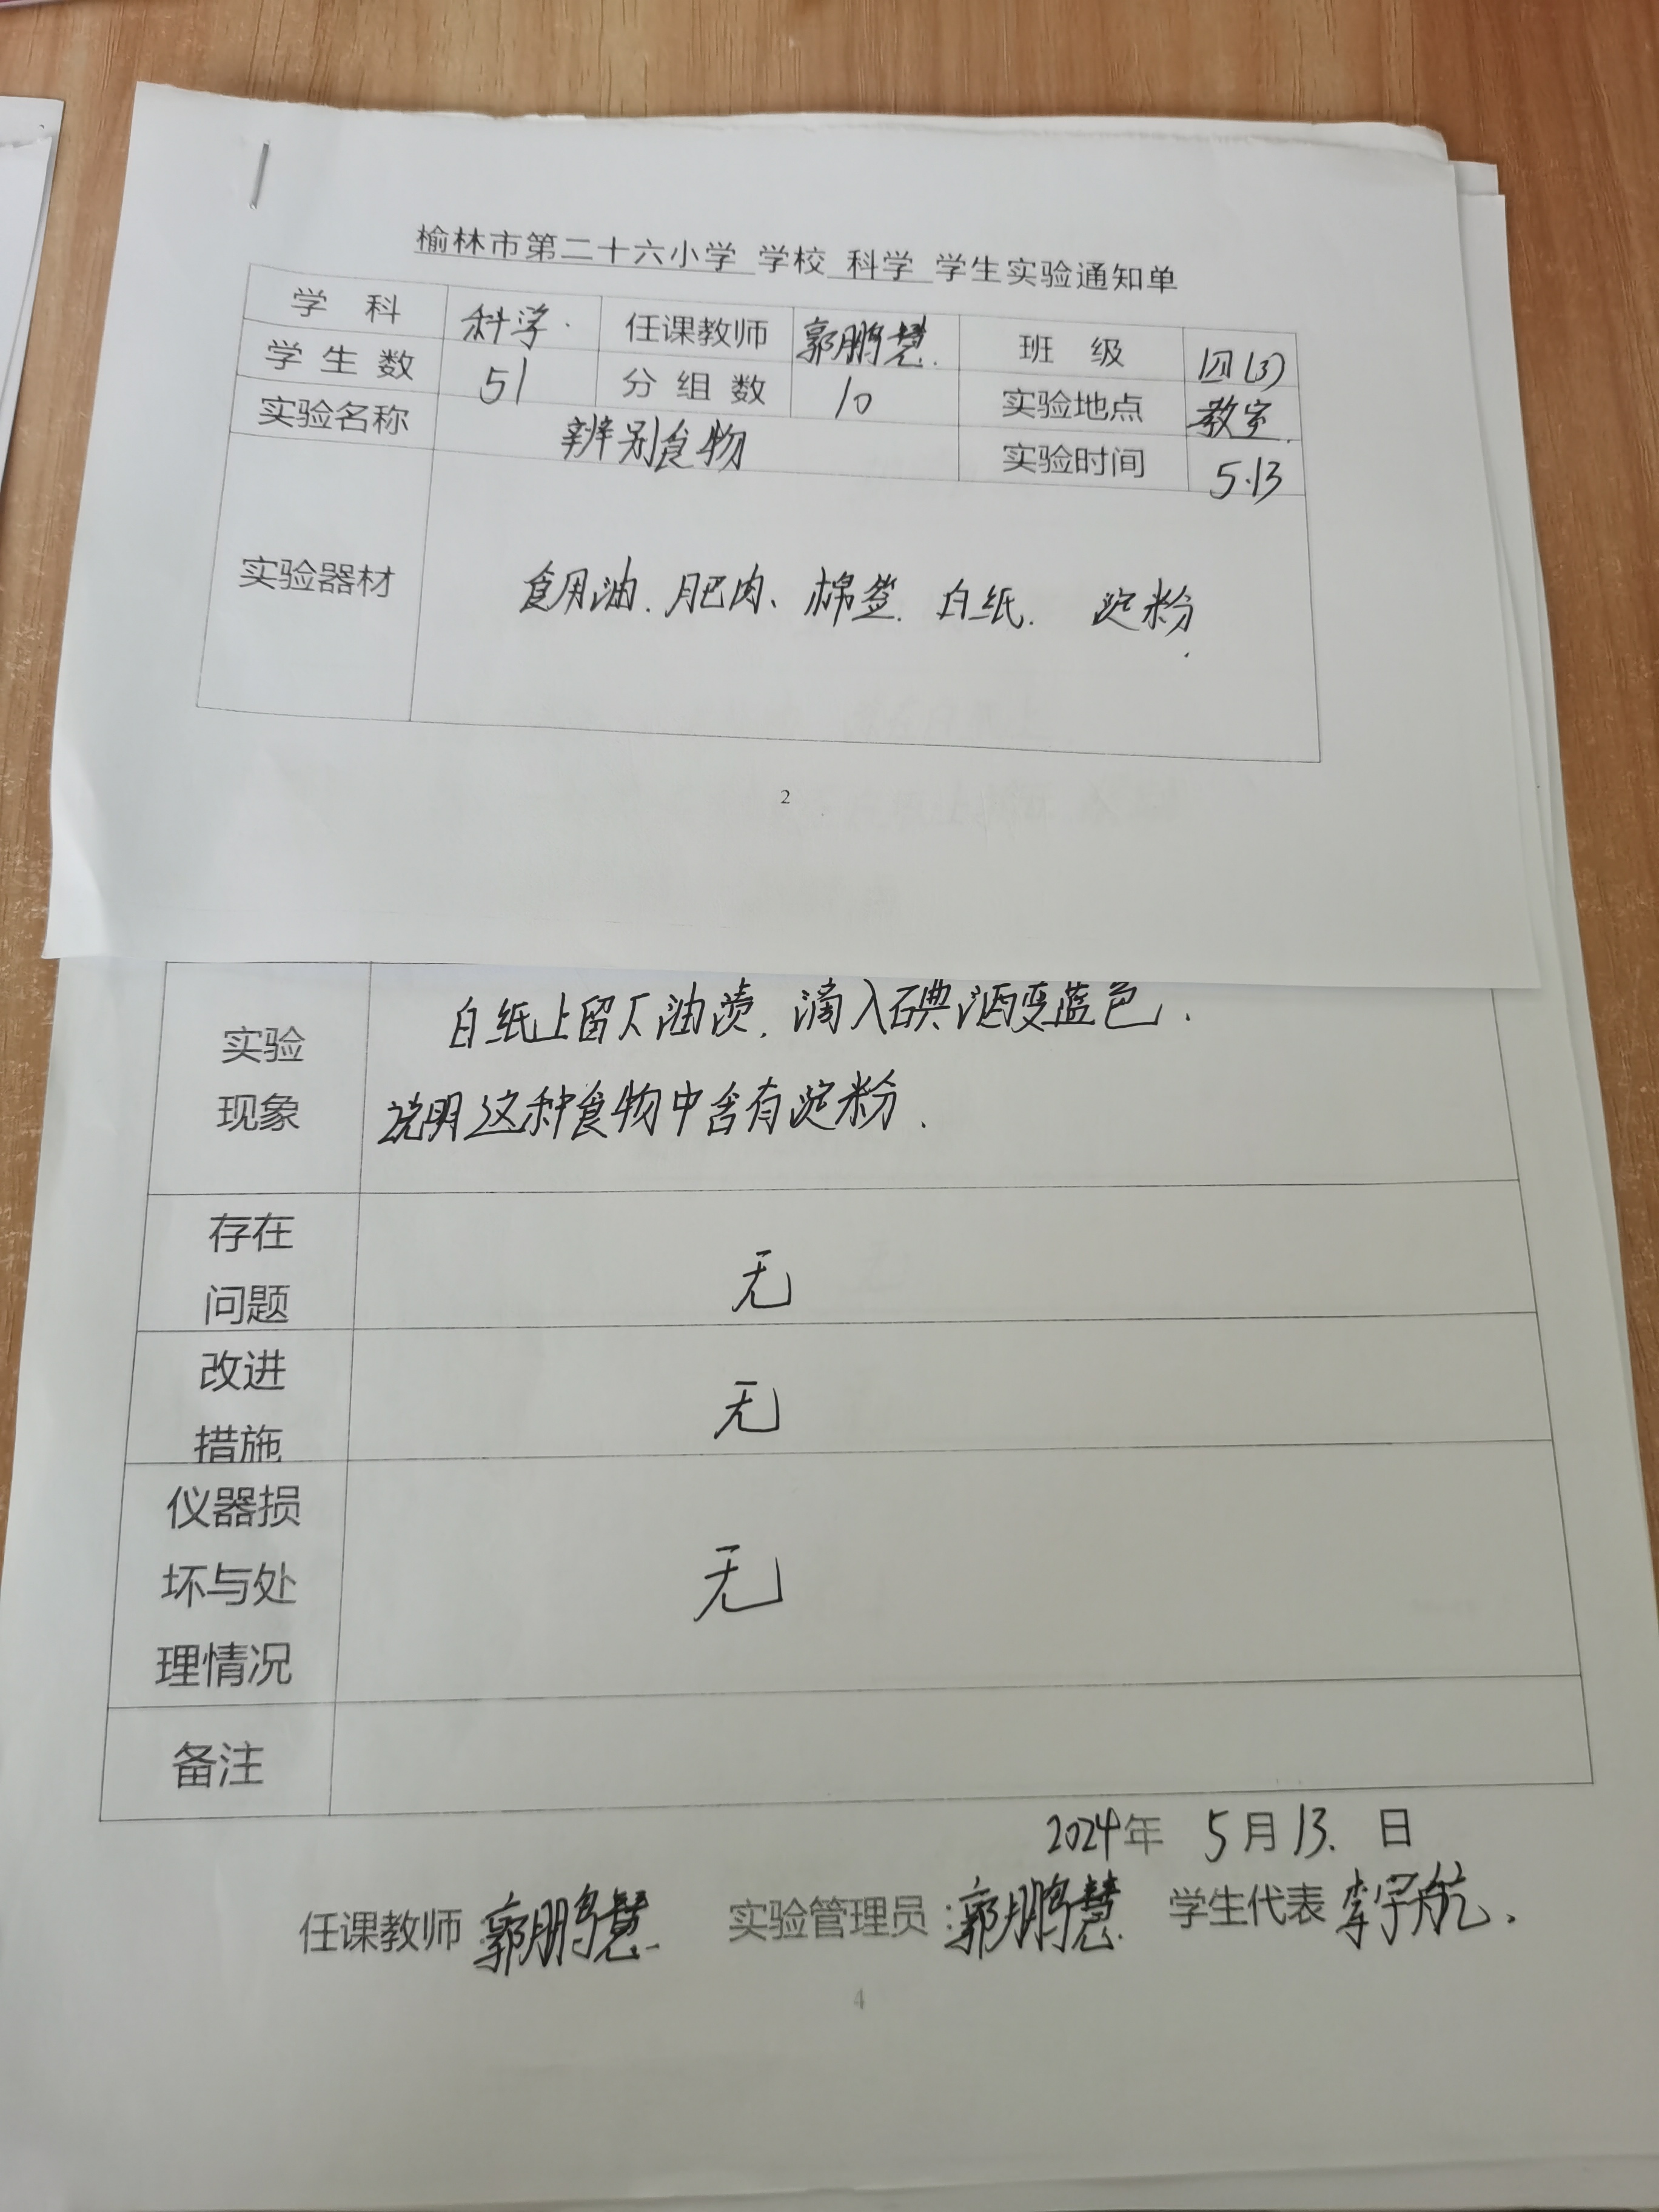 榆林市第二十六小学 学校 科学 学生实验通知单
学 科 科学. 任课教师 郭鹏慧. 班 级 四(3)
学 生 数 51 分 组 数 10 实验地点 教室.
实验名称 辨别食物 实验时间 5.13
实验器材 食用油. 肥肉、棉签. 白纸. 淀粉.
2
实验
现象
白纸上留下油渍. 滴入碘酒变蓝色.
说明这种食物中含有淀粉.
存在
问题
无
改进
措施
无
仪器损
坏与处
理情况
无
备注
2024年 5月13. 日
任课教师: 郭鹏慧. 实验管理员: 郭鹏慧. 学生代表 李宇航.
4